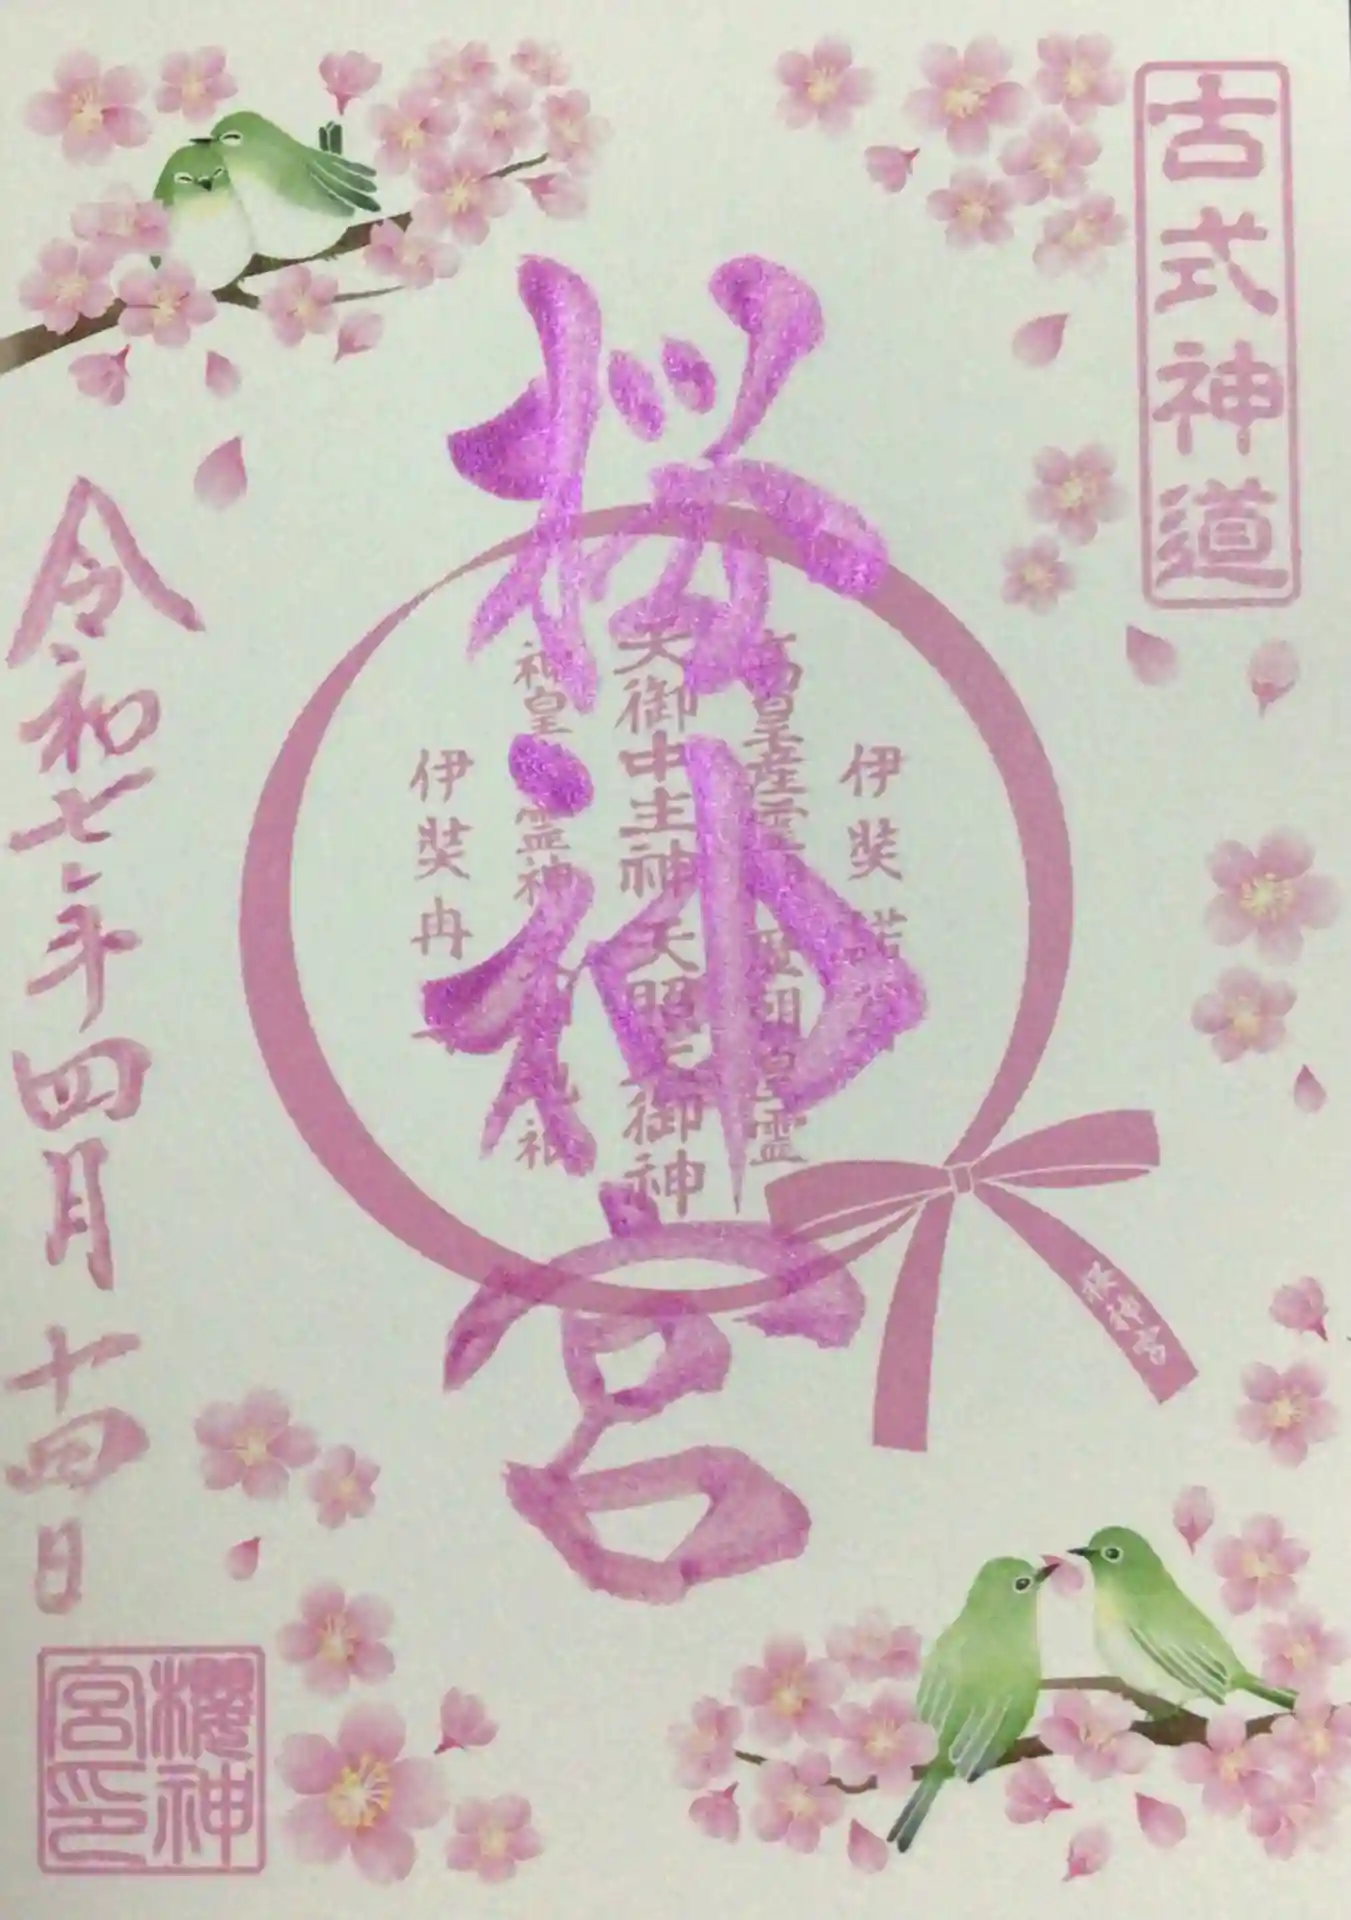 古式神道
桜神宮
伊奘諾
高皇産霊
皇霊
天御中主神 天照大御神
神皇
霊神
祇
伊奘冉
桜神宮
令和七年四月十四日
櫻神宮印